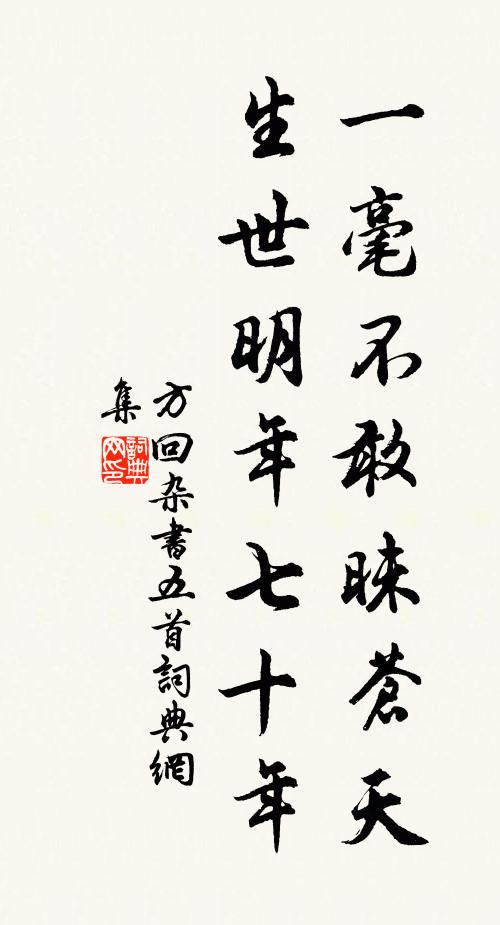 一毫不敢昧蒼天
生世明年七十年
方回杂書五首詞典網
集
詞典
网印